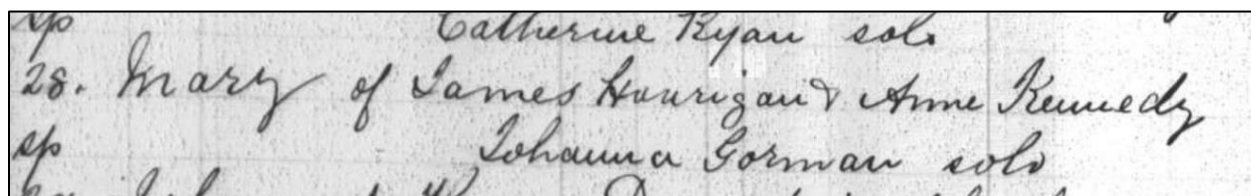 sp Catherine Ryan solo
28. Mary of James Hourigan & Anne Kennedy
sp Johanna Gorman solo